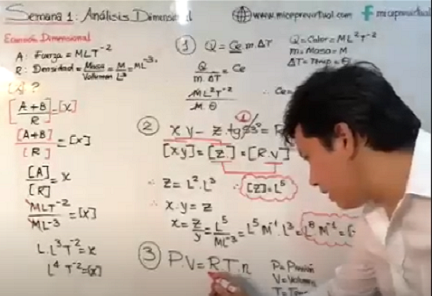 Semana 1: Análisis Dimensional
www.micaprevirtual.com
micaprevirtual
Ecuación Dimensional
A: Fuerza = MLT⁻²
R: Densidad = Masa/Volumen = M/L³ = ML⁻³
[(A+B)/R] = [X]
[A+B]/[R] = [X]
[A]/[R] = X
MLT⁻²/ML⁻³ = [X]
L·L³T⁻² = X
L⁴T⁻² = [X]
① Q = Ce·m·ΔT
Q/(m·ΔT) = Ce
ML²T⁻²/(M θ)
Q = Calor = ML²T⁻²
m = Masa = M
② xy - z·tg
[xy] = [z] = [R.V]
∴ z = L²·L³
∴ [z] = L⁵
∴ x·y = z
x = z/y = L⁵/ML⁻³ = L⁵M⁻¹·L³ = L⁸M⁻¹
③ P.V = R.T.n
P = Presión
V = Volumen